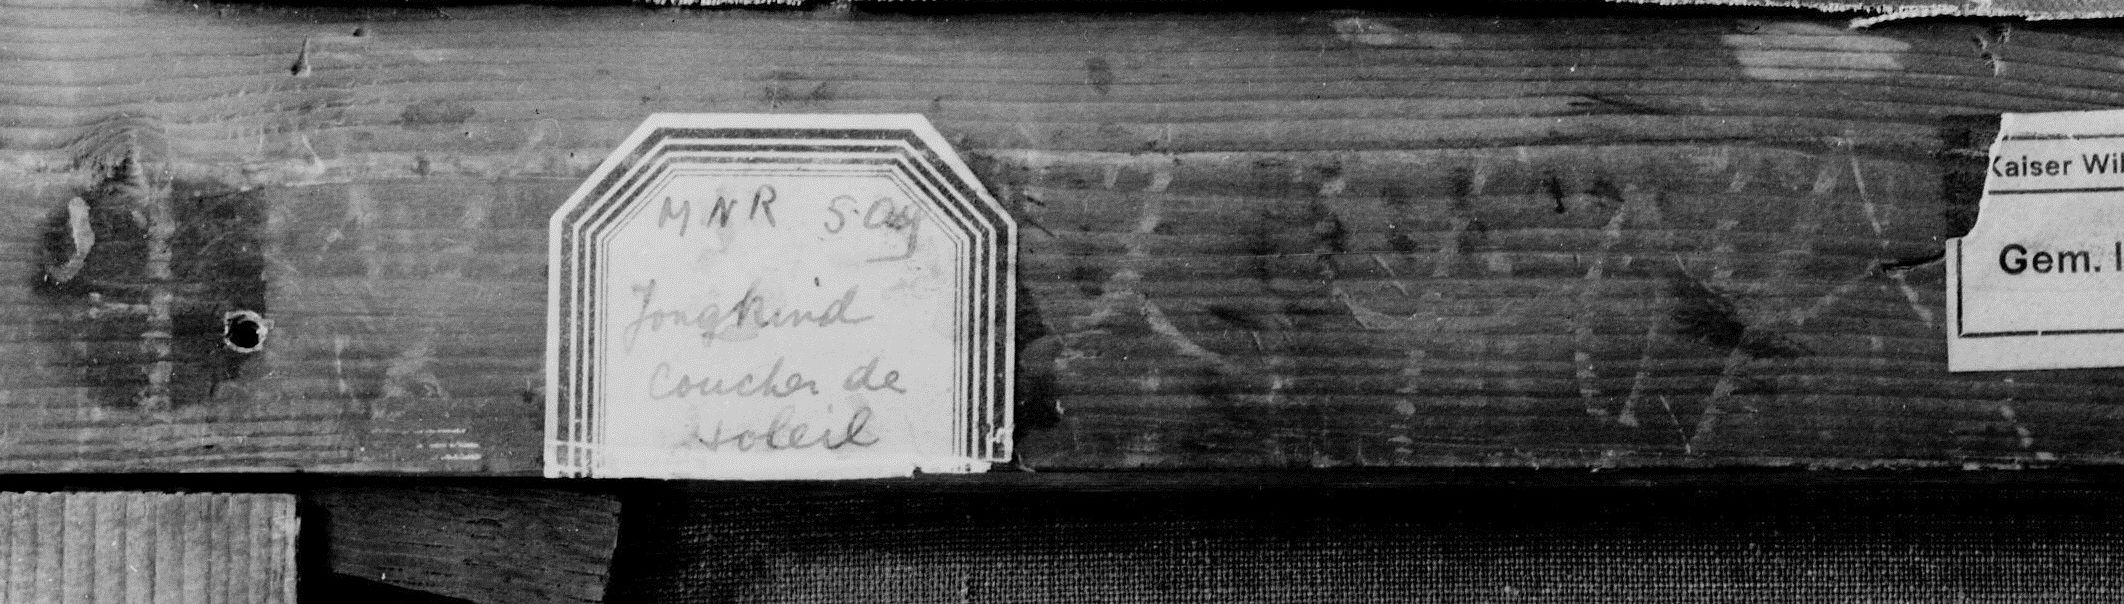 MNR
Jongkind
Coucher de
soleil
Kaiser Wil
Gem. I